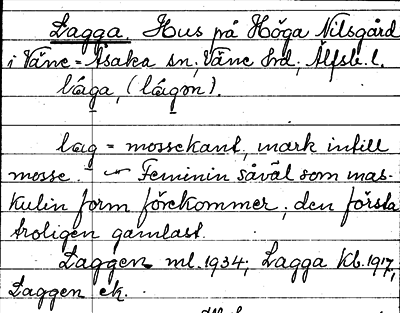 Lagga. Hus på Höga Nilsgård
i Väne-Åsaka sn, Väne hd, Älfsb. l.
låga, (lågon).
lag = mossekant, mark intill
mosse. – Feminin såväl som mas-
kulin form förekommer, den första
troligen gamlast.
Laggen ml. 1934; Lagga kb. 1917,
Laggen ek.